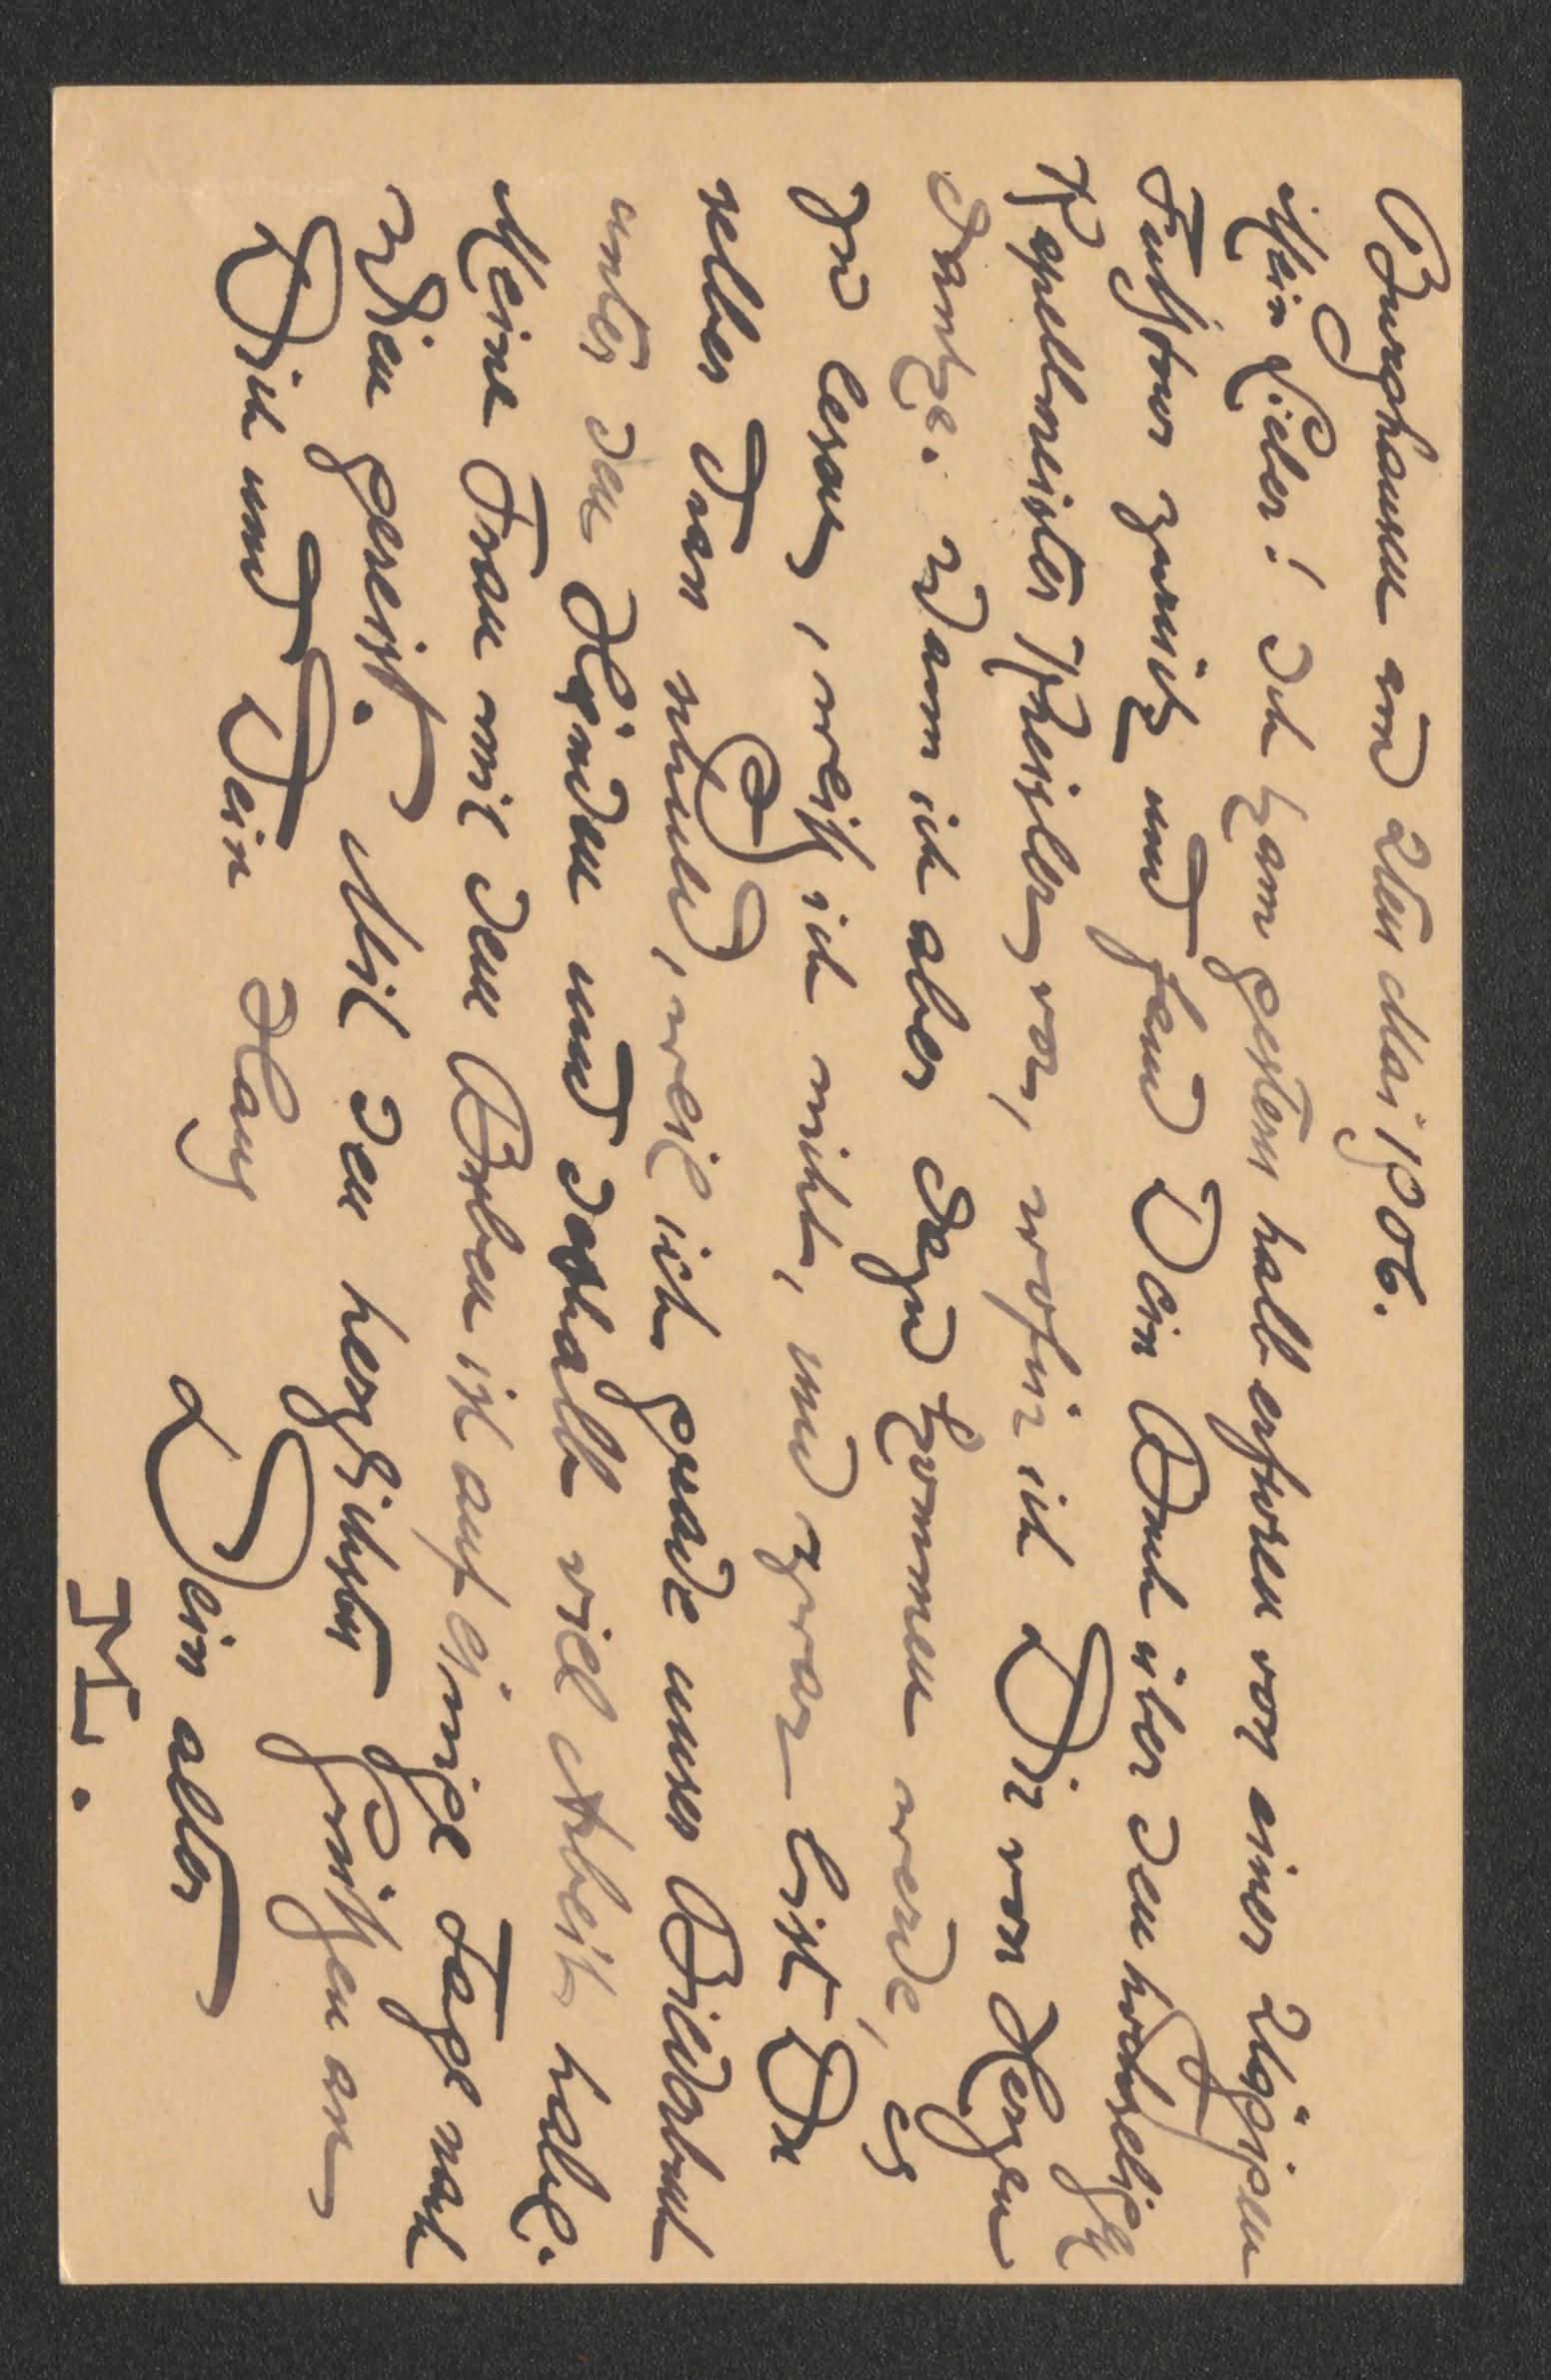 Burghausen am 24ten Mai 1906.
Mein Lieber! Ich kam gestern halb erfroren von einer 2tägigen
Fußtour zurück und fand Dein Buch über den hochseligen
Kapellmeister Kreisler vor, wofür ich Dir von Herzen
danke. Wann ich aber dazu kommen werde, es
zu lesen, weiß ich nicht, und zwar bist Du
selber dran schuld, weil ich gerade unser Bilderbuch
unter den Händen und deshalb viel Arbeit habe.
Meine Frau mit dem Buben ist auf einige Tage nach
Wien gereist. Mit den herzlichsten Grüßen an
Dich und Dein Haus
Dein alter
M.